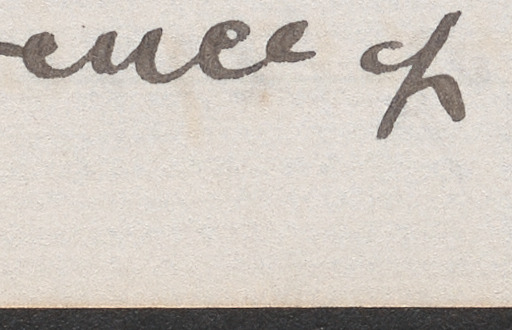 ence of